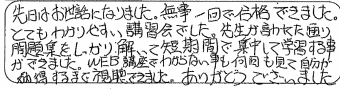 先日はお世話になりました。無事一回で合格できました。
とてもわかりやすい講習会でした。先生が言われた通り
問題集をしっかり解いて短期間で集中して学習する事
ができました。WEB講座でわからない事も何回も見て自分が
納得するまで視聴できました。ありがとうございました